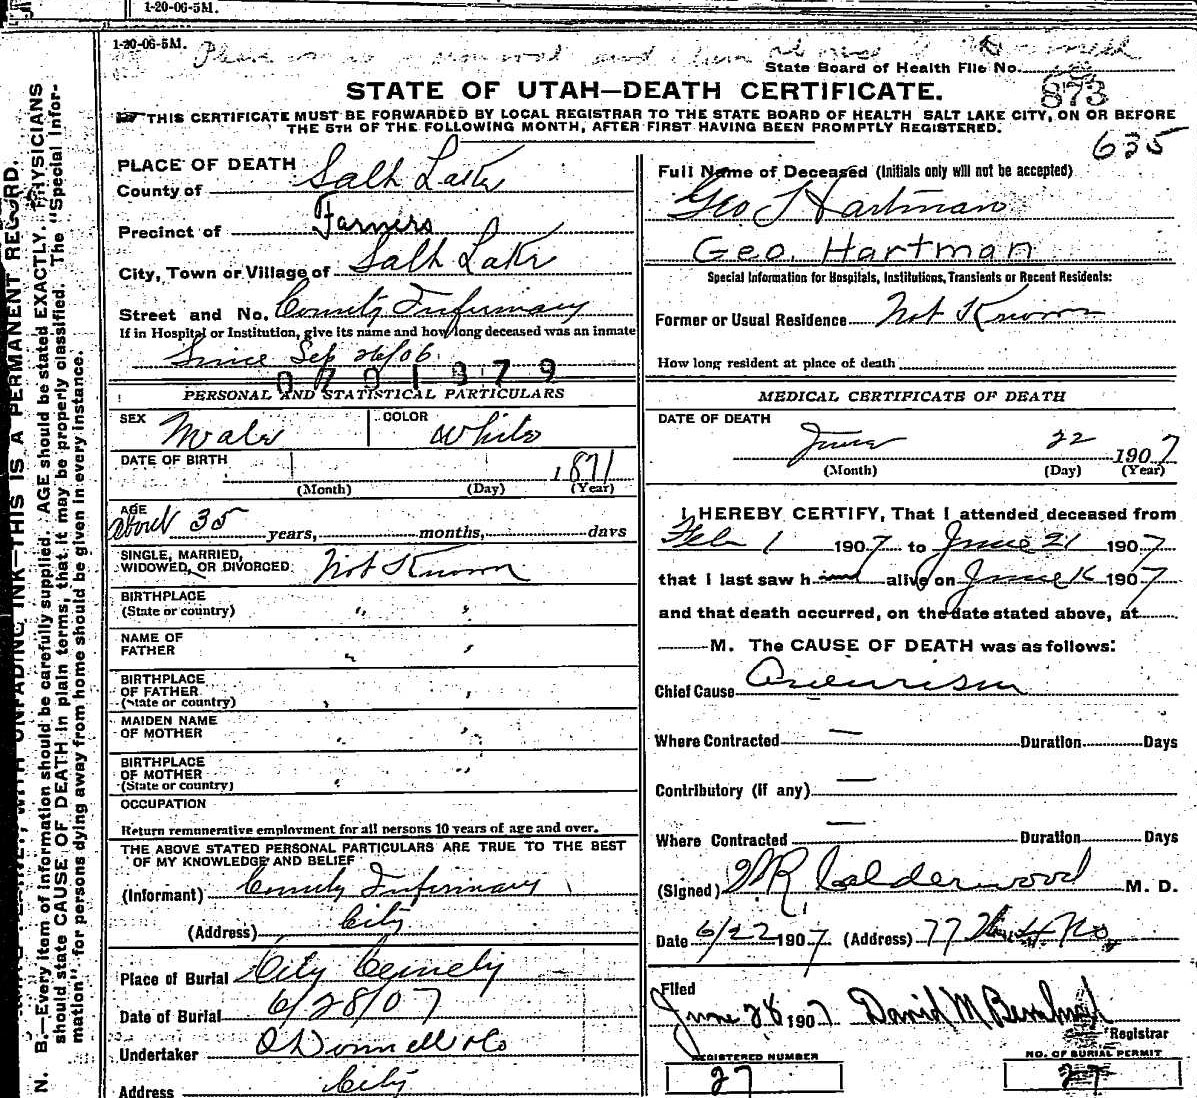 1-20-06-5M.
1-20-06-5M.
State Board of Health File No.
873
STATE OF UTAH—DEATH CERTIFICATE.
THIS CERTIFICATE MUST BE FORWARDED BY LOCAL REGISTRAR TO THE STATE BOARD OF HEALTH SALT LAKE CITY, ON OR BEFORE
THE 5TH OF THE FOLLOWING MONTH, AFTER FIRST HAVING BEEN PROMPTLY REGISTERED.
635
PLACE OF DEATH
County of Salt Lake
Precinct of Farmers
City, Town or Village of Salt Lake
Street and No. County Infirmary
If in Hospital or Institution, give its name and how long deceased was an inmate
Since Sep 26/06
0701879
PERSONAL AND STATISTICAL PARTICULARS
SEX Male COLOR White
DATE OF BIRTH 1871
(Month) (Day) (Year)
AGE
about 35 years, months, days
SINGLE, MARRIED,
WIDOWED, OR DIVORCED Not Known
BIRTHPLACE
(State or country) " "
NAME OF
FATHER " "
BIRTHPLACE
OF FATHER
(State or country) " "
MAIDEN NAME
OF MOTHER " "
BIRTHPLACE
OF MOTHER
(State or country) " "
OCCUPATION
Return remunerative employment for all persons 10 years of age and over.
THE ABOVE STATED PERSONAL PARTICULARS ARE TRUE TO THE BEST
OF MY KNOWLEDGE AND BELIEF
(Informant) County Infirmary
(Address) City
Place of Burial City Cemetery
Date of Burial 6/28/07
Undertaker O'Donnell & Co
Address City
Full Name of Deceased (Initials only will not be accepted)
Geo S Hartman
Geo. Hartman
Special Information for Hospitals, Institutions, Transients or Recent Residents:
Former or Usual Residence Not Known
How long resident at place of death
MEDICAL CERTIFICATE OF DEATH
DATE OF DEATH
June 22 1907
(Month) (Day) (Year)
I HEREBY CERTIFY, That I attended deceased from
Feb 1 1907 to June 21 1907
that I last saw him alive on June 16 1907
and that death occurred, on the date stated above, at
M. The CAUSE OF DEATH was as follows:
Chief Cause Aneurism
Where Contracted — Duration Days
Contributory (if any) —
Where Contracted — Duration Days
(Signed) M R Calderwood M. D.
Date 6/22 1907 (Address) 77 No
Filed
June 28 1907 David M
Registrar
REGISTERED NUMBER NO. OF BURIAL PERMIT
27 27
N. B.—Every item of information should be carefully supplied. AGE should be stated EXACTLY. PHYSICIANS
should state CAUSE OF DEATH in plain terms, that it may be properly classified. The "Special Infor-
mation" for persons dying away from home should be given in every instance.
WITH UNFADING INK—THIS IS A PERMANENT RECORD.